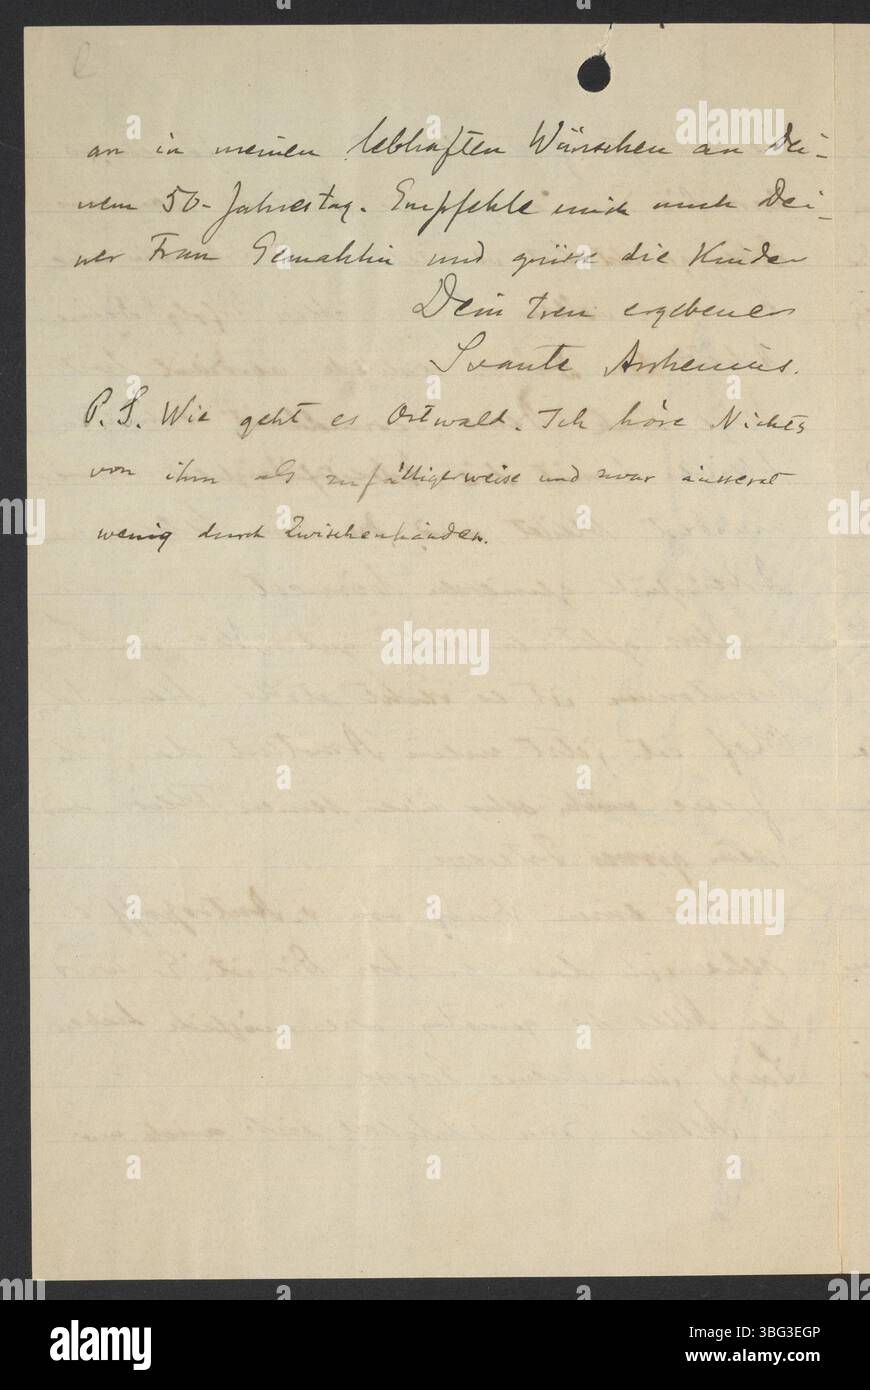 an in meinen lebhaften Wünschen an Dei-
nem 50-Jahrestag. Empfehle mich auch Dei-
ner Frau Gemahlin und grüsse die Kinder
Dein treu ergebener
Svante Arrhenius.
P. S. Wie geht es Ostwald. Ich höre Nichts
von ihm als zufälligerweise und zwar äusserst
wenig durch Zwischenhänden.
alamy
Image ID: 3BG3EGP
www.alamy.com